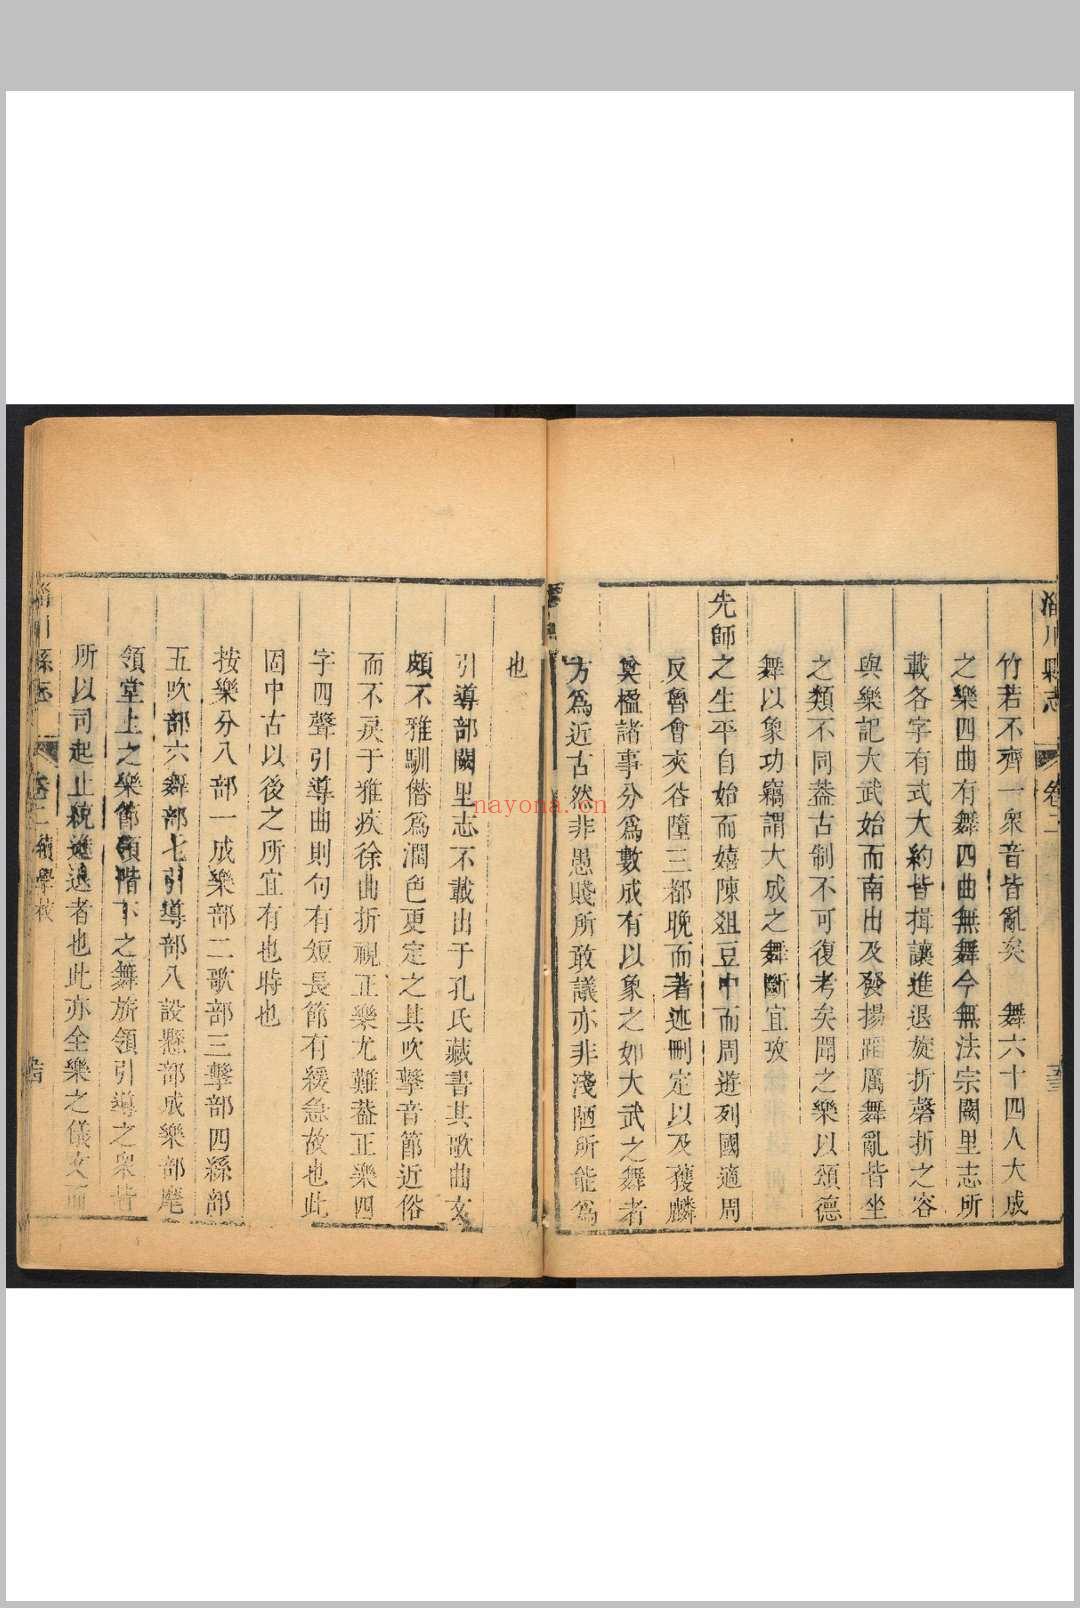 淄川縣志
卷二
竹若不齊一衆音皆亂矣　舞六十四人大成
之樂四曲有舞四曲無舞今無法宗闕里志所
載各字有式大約皆揖讓進退旋折磬折之容
與樂記大武始而南出及發揚蹈厲舞亂皆坐
之類不同葢古制不可復考矣聞之樂以頌德
舞以象功竊謂大成之舞斷宜攷
先師之生平自始而嬉陳爼豆中而周遊列國適周
反魯會夾谷墮三都晚而著述刪定以及獲麟
奠楹諸事分爲數成有以象之如大武之舞者
方爲近古然非愚賤所敢議亦非淺陋所能爲
也
引導部闕里志不載出于孔氏藏書其歌曲文
頗不雅馴僭爲潤色更定之其吹擊音節近俗
而不戾于雅疾徐曲折視正樂尤難葢正樂四
字四聲引導曲則句有短長節有緩急故也此
固中古以後之所宜有也時也
按樂分八部一成樂部二歌部三擊部四絲部
五吹部六舞部七引導部八設懸部成樂部麾
領堂上之樂節領階下之舞旂領引導之衆皆
所以司起止統進退者也此亦全樂之儀文而
淄川縣志
卷二續學校
nayona.cn